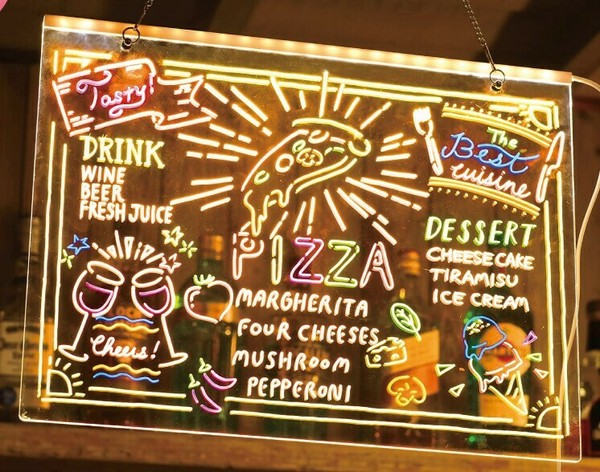 Tasty!
DRINK
WINE
BEER
FRESH JUICE
Cheers!
PIZZA
MARGHERITA
FOUR CHEESES
MUSHROOM
PEPPERONI
The
Best
cuisine
DESSERT
CHEESE CAKE
TIRAMISU
ICE CREAM